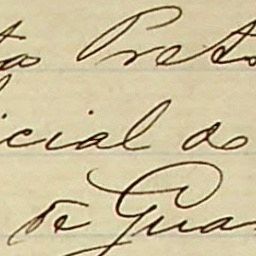 to Preto
icial do
de Gua